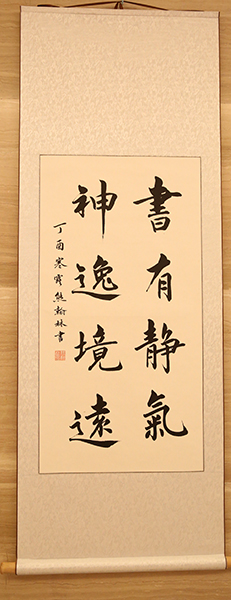 書有静氣
神逸境遠
丁酉寒露熊翰林書